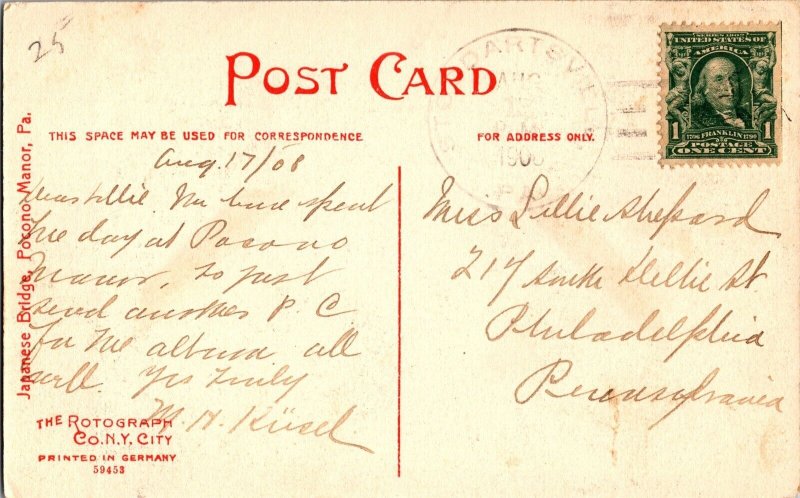 25
POST CARD
THIS SPACE MAY BE USED FOR CORRESPONDENCE
FOR ADDRESS ONLY.
SERIES 1902
UNITED STATES OF
AMERICA
1706 FRANKLIN 1790
1 1
POSTAGE
ONE CENT
BARTSVILLE
AUG
PA.
Aug. 17/08
Dear Lillie We have spent
the day at Pocono
Manor, so just
send another P. C
for the album all
well. Yrs Truly
M. H. Küsel
Miss Lillie Shepard
217 South St
Philadelphia
Pennsylvania
Japanese Bridge, Pocono Manor, Pa.
THE ROTOGRAPH
CO. N.Y. CITY
PRINTED IN GERMANY
59453